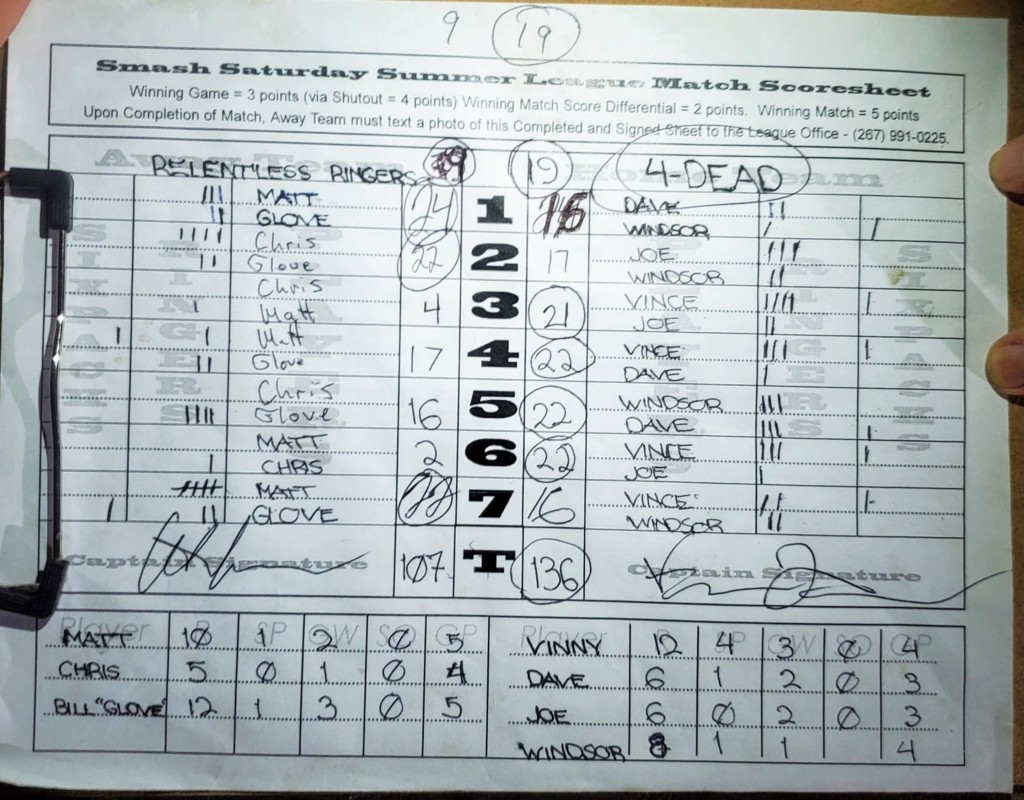 9 19
Smash Saturday Summer League Match Scoresheet
Winning Game = 3 points (via Shutout = 4 points) Winning Match Score Differential = 2 points. Winning Match = 5 points
Upon Completion of Match, Away Team must text a photo of this Completed and Signed Sheet to the League Office - (267) 991-0225.
Away Team Home Team
RELENTLESS RINGERS 9 19 4-DEAD
MATT 24 1 16 DAVE
GLOVE WINDSOR
Chris 22 2 17 JOE
Glove WINDSOR
Chris 4 3 21 VINCE
Matt JOE
Matt 17 4 22 VINCE
Glove DAVE
Chris 16 5 22 WINDSOR
Glove DAVE
MATT 2 6 22 VINCE
CHRIS JOE
MATT 22 7 16 VINCE
GLOVE WINDSOR
SIXPACKS RINGERS RINGERS SIXPACKS
Captain Signature 107 T 136 Captain Signature
Player R SP GW SO GP Player R SP GW SO GP
MATT 10 1 2 0 5 VINNY 12 4 3 0 4
CHRIS 5 0 1 0 4 DAVE 6 1 2 0 3
BILL "GLOVE" 12 1 3 0 5 JOE 6 0 2 0 3
WINDSOR 8 1 1 4